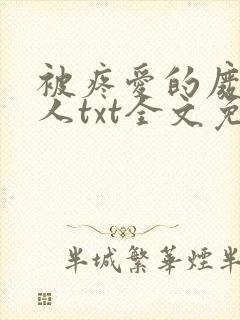 被疼爱的废
人txt全文免
半城繁華煙半